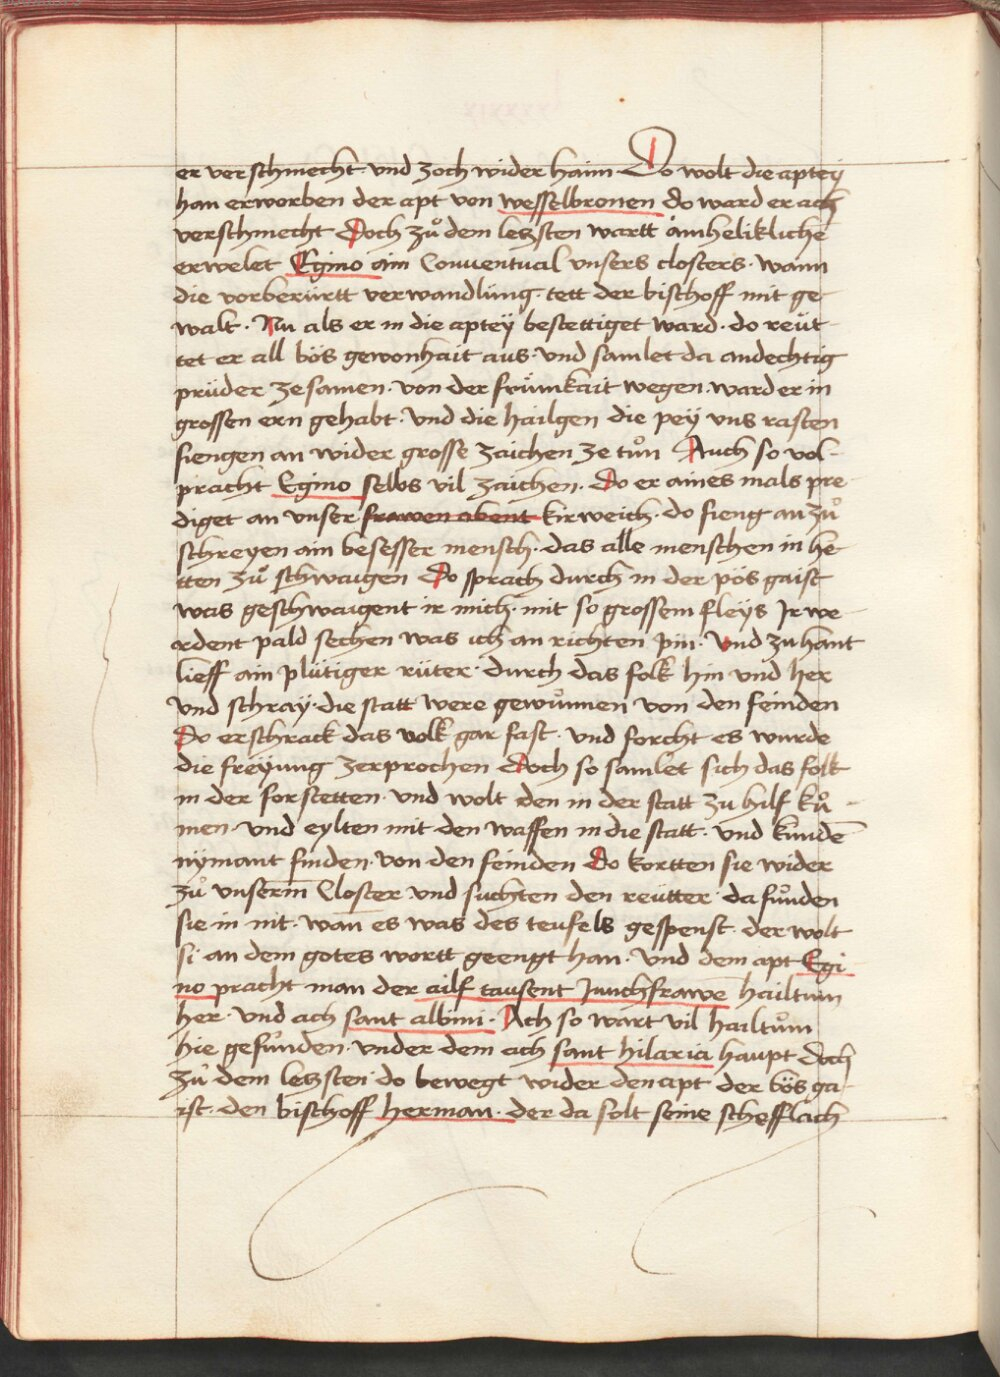 er verschmecht · und zoch wider haim · Do wolt die aptey
han erworben der apt von wesselbronen do ward er ach
verschmecht Doch zuͦ dem leczsten wartt ainhelikliche
erwelet Egino ain Conventual unsers closters · wann
die vorberürtt verwandlüng · tett der bischoff mit ge-
walt · Nu als er in die apteÿ bestettiget ward · do reüt-
tet er all bös gewonhait aus · und samlet da andechtig
prüder zesamen · von der frümkait wegen · ward er in
grossen ern gehabt · und die hailgen die peÿ uns rasten
fiengen an wider grosse zaichen ze tuͦn Auch so vol-
pracht Egino selbs vil zaichen · Do er aines mals pre-
diget an unser frawen abent kirweich · do fieng an zuͦ
schreyen ain besesser mensch · das alle menschen in he-
tten zuͦ schwaigen Do sprach durch in der pös gaist
was geschwaigent ir mich · mit so grossem fleÿs Ir we-
rdent pald sechen was ich an richten pin · Und zu hant
lieff ain plütiger rüter · durch das folk hin und her
und schray · die statt were gewuͦnnen von den feinden
Do erschrack das volk gar fast · und forcht es wurde
die freÿung zerprochen Doch so samlet sich das folk
in der forstetten · und wolt den in der statt zu hilf kuͦ-
men · und eylten mit den waffen in die statt · und kundē
nÿmant finden · von den feinden Do kortten sie wider
zuͦ unserm Closter und suchten den reütter · da fuͦnden
sie in nit · wan es was des teufels gespenst · der wolt
si · an dem gotes wortt geengt han · Und dem apt Egi-
no pracht man der ailf tausent Junckfrawē hailtum
her · und ach sant albini · Ach so wart vil hailtuͦm
hie gefunden · under dem ach sant hilaria haupt Doch
zuͦ dem leczsten do bewegt wider den apt der bös ga-
ist · den bischoff herman · der da solt seine schefflach